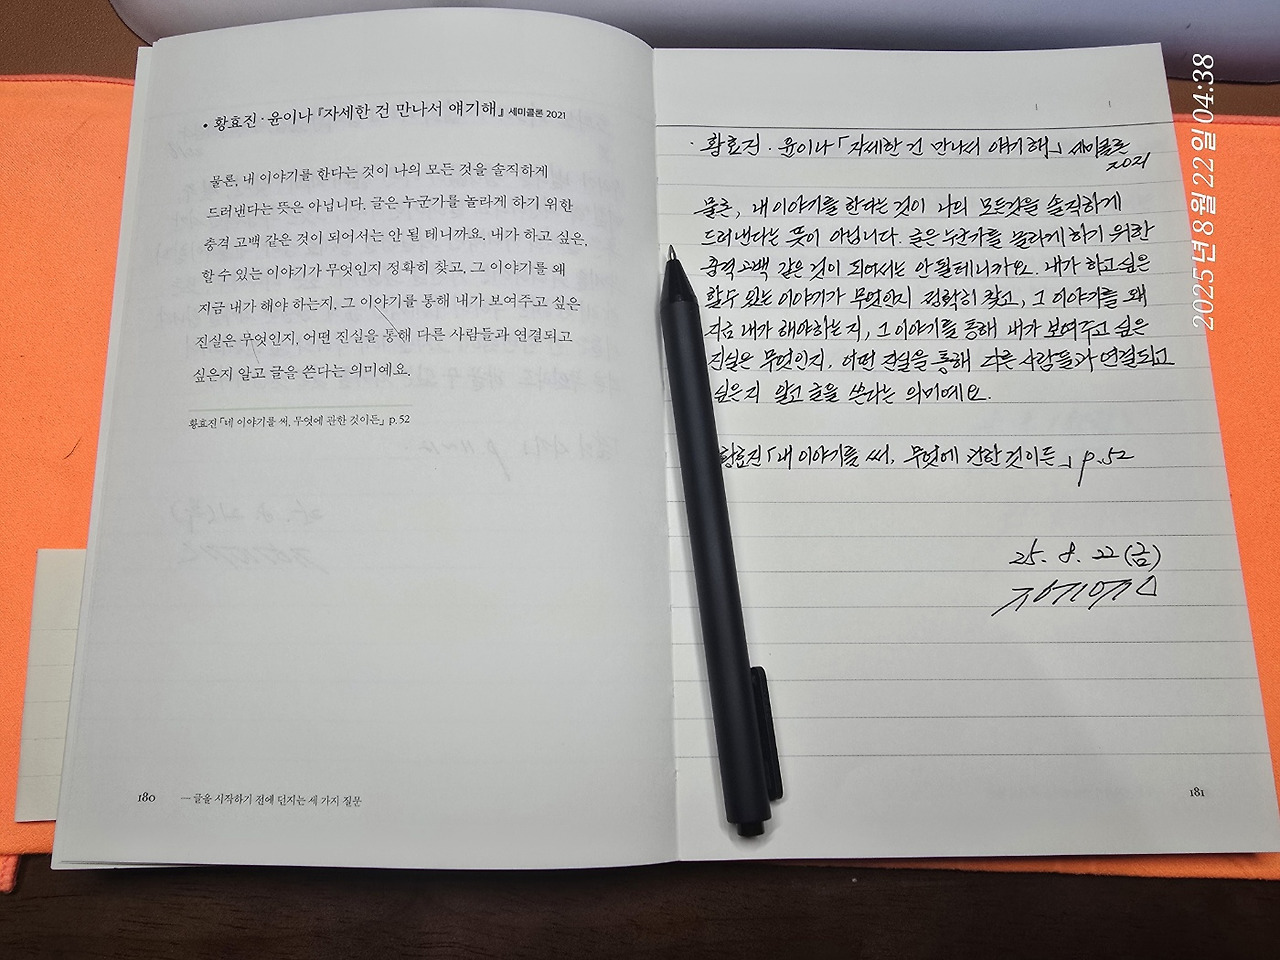 • 황효진·윤이나 『자세한 건 만나서 얘기해』 세미콜론 2021
물론, 내 이야기를 한다는 것이 나의 모든 것을 솔직하게
드러낸다는 뜻은 아닙니다. 글은 누군가를 놀라게 하기 위한
충격 고백 같은 것이 되어서는 안 될 테니까요. 내가 하고 싶은,
할 수 있는 이야기가 무엇인지 정확히 찾고, 그 이야기를 왜
지금 내가 해야 하는지, 그 이야기를 통해 내가 보여주고 싶은
진실은 무엇인지, 어떤 진실을 통해 다른 사람들과 연결되고
싶은지 알고 글을 쓴다는 의미예요.
황효진 「네 이야기를 써, 무엇에 관한 것이든」 p.52
180 — 글을 시작하기 전에 던지는 세 가지 질문
· 황효진·윤이나 「자세한 건 만나서 얘기해」 세미콜론
2021
물론, 내 이야기를 한다는 것이 나의 모든것을 솔직하게
드러낸다는 뜻이 아닙니다. 글은 누군가를 놀라게 하기 위한
충격 고백 같은 것이 되어서는 안 될 테니까요. 내가 하고 싶은
할 수 있는 이야기가 무엇인지 정확히 찾고, 그 이야기를 왜
지금 내가 해야 하는지, 그 이야기를 통해 내가 보여주고 싶은
진실은 무엇인지, 어떤 진실을 통해 다른 사람들과 연결되고
싶은지 알고 글을 쓴다는 의미예요.
황효진 「내 이야기를 써, 무엇에 관한 것이든」 p.52
25. 8. 22 (금)
181
2025년 8월 22일 04:38